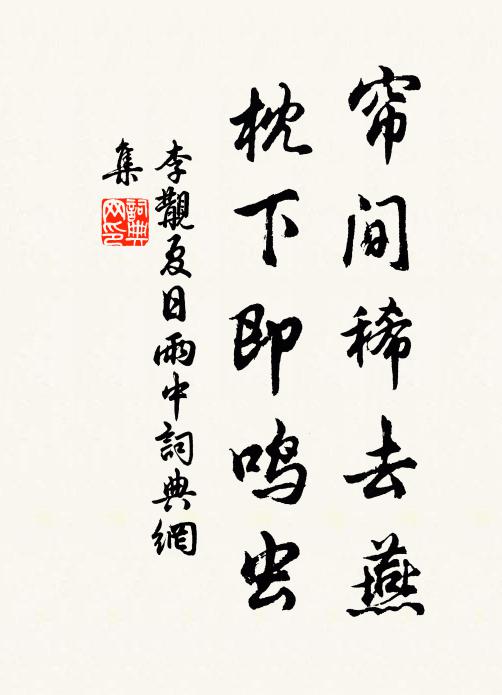 帘间稀去燕
枕下即鸣虫
李觀夏日雨中詞典網
集
詞典
网印